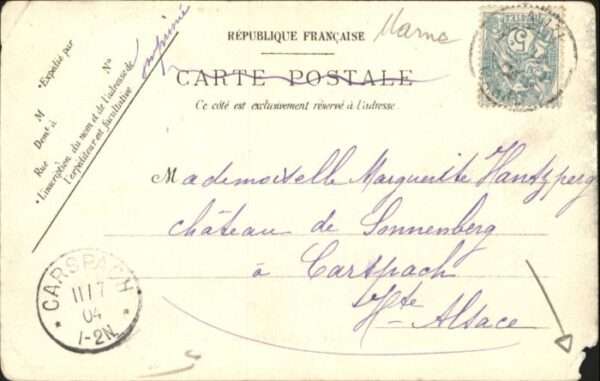 RÉPUBLIQUE FRANÇAISE
Marne
CARTE POSTALE
Ce côté est exclusivement réservé à l'adresse.
*Expédié par
M
N°
Demt à
Rue
*L'inscription du nom et de l'adresse de
l'expéditeur est facultative
imprimé
5
Mademoiselle Marguerite Hantzperg
château de Sonnenberg
à Carspach
Hte Alsace
CARSPACH
11/7
04
1-2N.